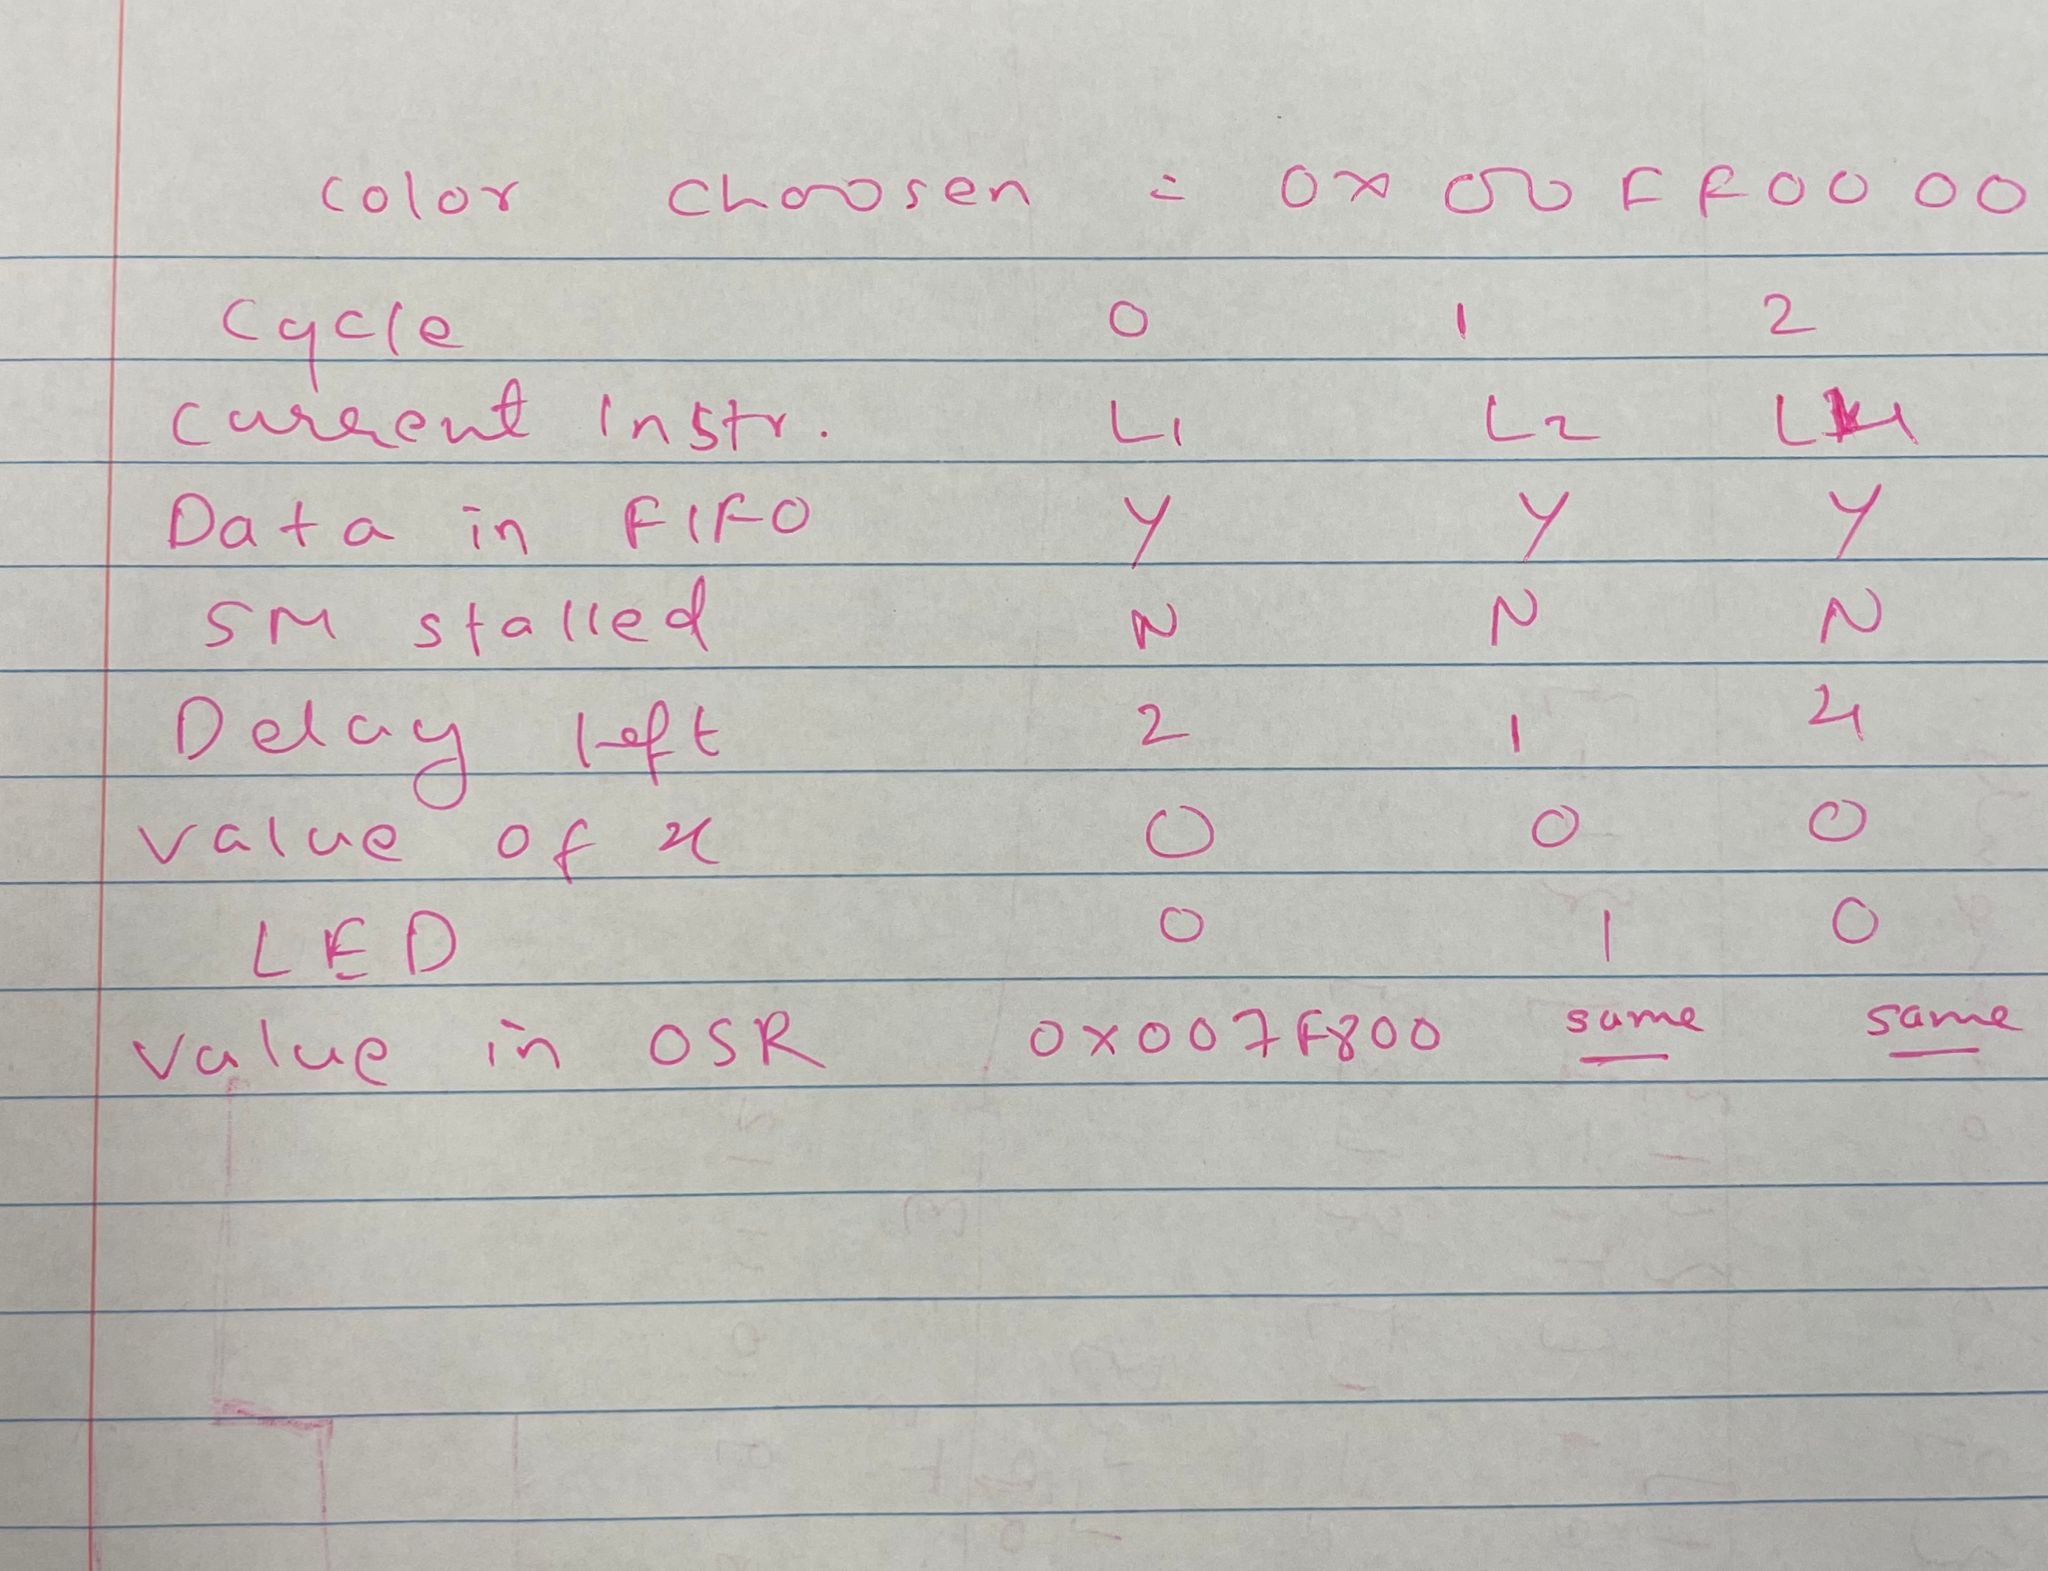 Color choosen = 0x00FF0000
Cycle 0 1 2
Current Instr. L1 L2 L4
Data in FIFO Y Y Y
SM stalled N N N
Delay left 2 1 4
value of x 0 0 0
LED 0 1 0
value in OSR 0x007F800 same same